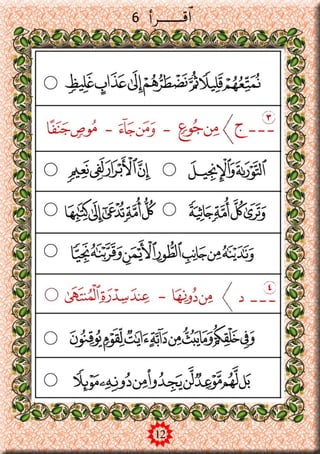 ٱقــرأ 6
نُمَتِّعُهُمْ قَلِيلًا ثُمَّ نَضْطَرُّهُمْ إِلَىٰ عَذَابٍ غَلِيظٍ
٣
--- ج 〉 مِن جُوعٍ - وَمَن جَآءَ - مُوصٍ جَنَفًا
ٱلتَّوْرَىٰةَ وَٱلْإِنجِيلَ ○ إِنَّ ٱلْأَبْرَارَ لَفِى نَعِيمٍ
وَتَرَىٰ كُلَّ أُمَّةٍ جَاثِيَةً ○ كُلُّ أُمَّةٍ تُدْعَىٰٓ إِلَىٰ كِتَٰبِهَا
وَنَٰدَيْنَٰهُ مِن جَانِبِ ٱلطُّورِ ٱلْأَيْمَنِ وَقَرَّبْنَٰهُ نَجِيًّا
٤
--- د 〉 مِن دُونِهَا - عِندَ سِدْرَةِ ٱلْمُنتَهَىٰ
وَفِى خَلْقِكُمْ وَمَا يَبُثُّ مِن دَآبَّةٍ ءَايَٰتٌ لِّقَوْمٍ يُوقِنُونَ
بَل لَّهُم مَّوْعِدٌ لَّن يَجِدُوا۟ مِن دُونِهِۦ مَوْئِلًا
12